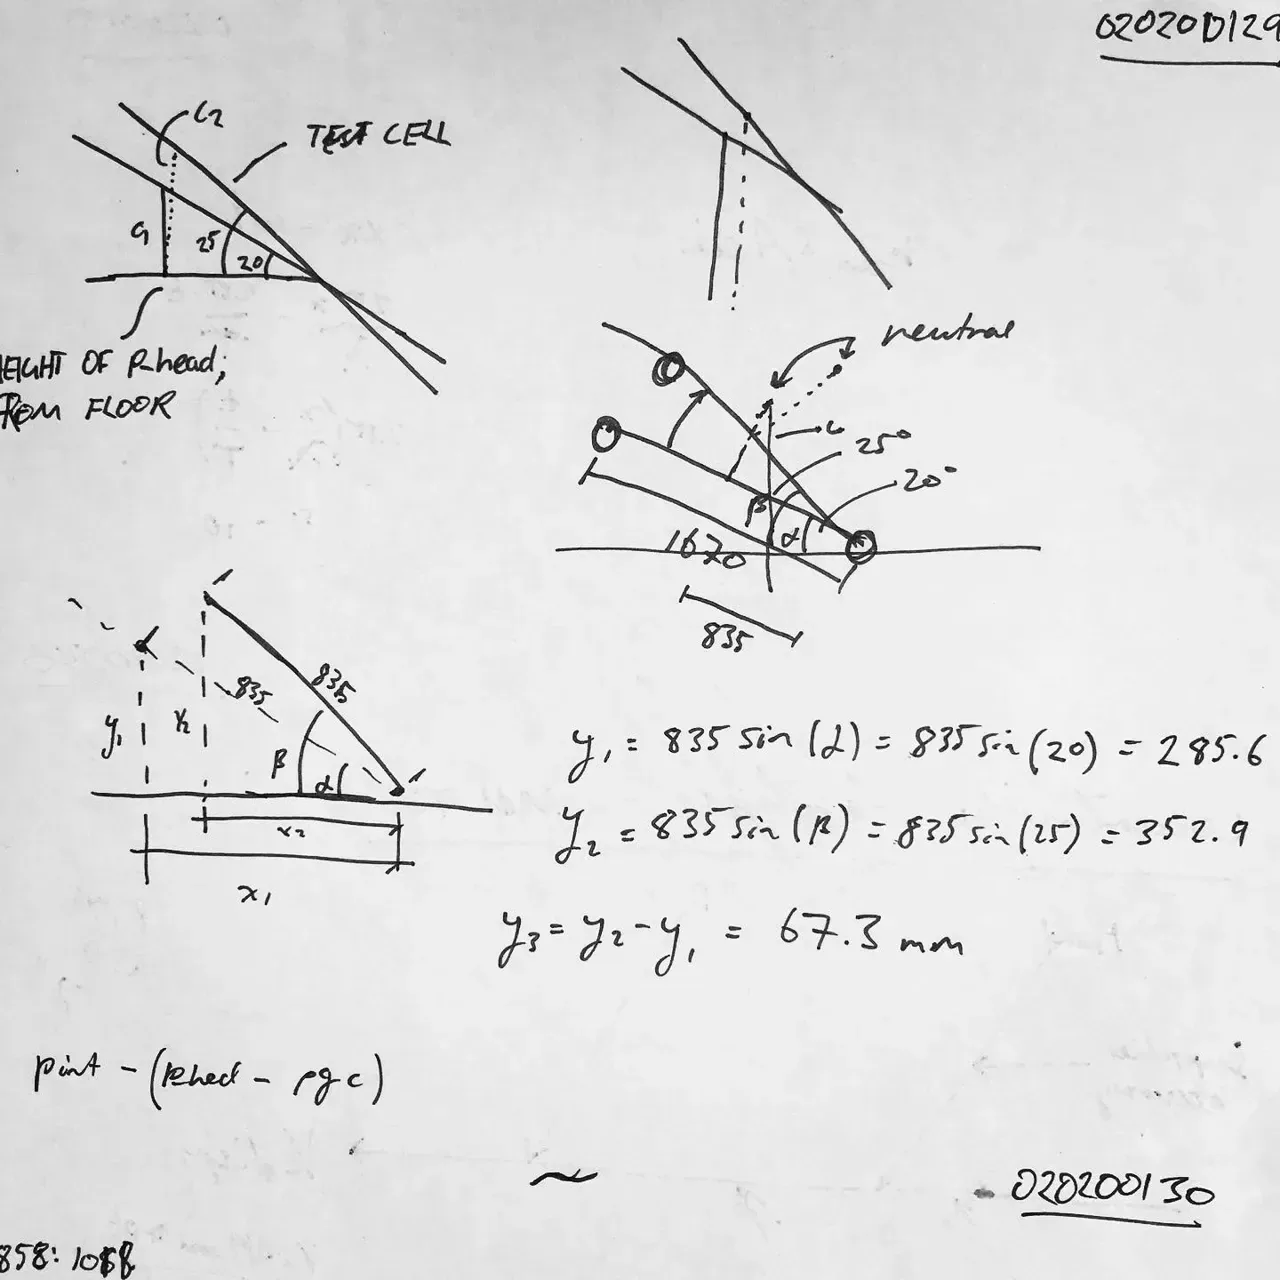 020200129
L2
TEST CELL
9
25
20
HEIGHT OF Rhead;
FROM FLOOR
neutral
L
25°
20°
β
α
1670
835
835
835
y1
y2
β
α
x2
x1
y1 = 835 sin (α) = 835 sin (20) = 285.6
y2 = 835 sin (β) = 835 sin (25) = 352.9
y3 = y2 - y1 = 67.3 mm
pint - (Rhed - ρgc)
~
020200130